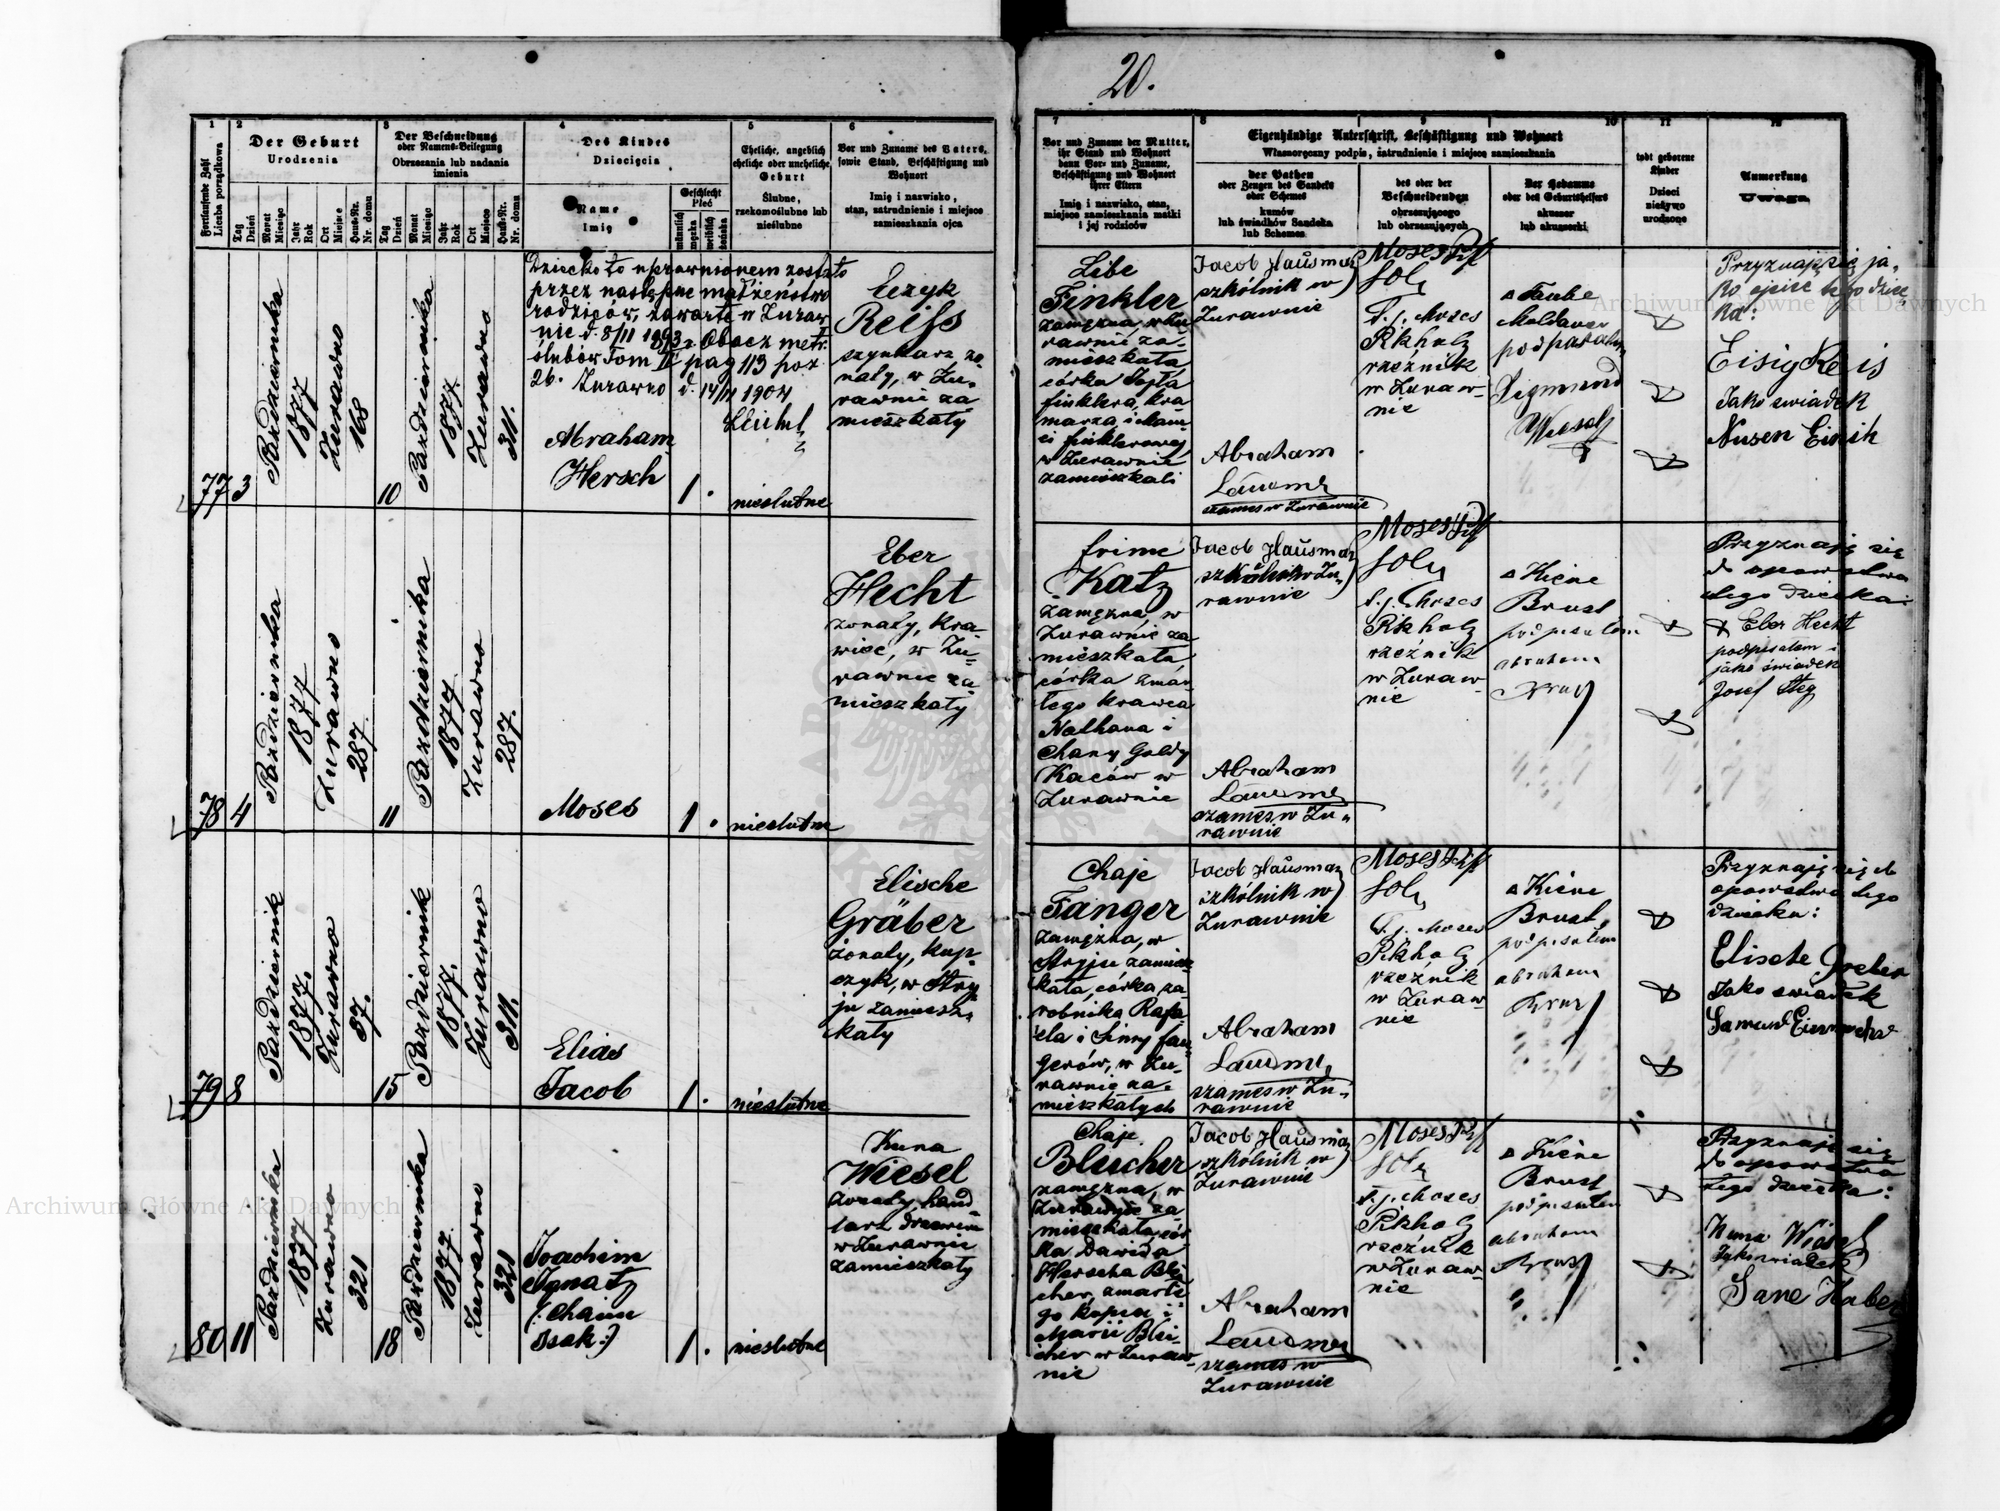 20.
1
2
3
4
5
6
Fortlaufende Zahl
Liczba porządkowa
Der Geburt
Urodzenia
Der Beschneidung
oder Namens-Beilegung
Obrzezania lub nadania
imienia
Des Kindes
Dziecięcia
Eheliche, angeblich
eheliche oder uneheliche
Geburt
Ślubne,
rzekomoślubne lub
nieślubne
Vor und Zuname des Vaters,
sowie Stand, Beschäftigung und
Wohnort
Imię i nazwisko,
stan, zatrudnienie i miejsce
zamieszkania ojca
Tag
Dzień
Monat
Miesiąc
Jahr
Rok
Ort
Miejsce
Haus-Nr.
Nr. domu
Tag
Dzień
Monat
Miesiąc
Jahr
Rok
Ort
Miejsce
Haus-Nr.
Nr. domu
Name
Imię
Geschlecht
Płeć
männlich
męzka
weiblich
żeńska
77
3
Października
1877
Żurawno
168
10
Października
1877
Żurawno
311.
Dziecko to uprawnionem zostało
przez następne małżeństwo
rodziców, zawarte w Żuraw
nie d. 8/11 1903. Obacz metr.
ślubów Tom II pag 113 poz
26. Żurawno d. 14/11 1904
Abraham
Hersch
1.
nieślubne
Eizyk
Reiss
szynkarz żo
naty, w Żu-
rawnie za
mieszkały
78
4
Października
1877
Żurawno
287.
11
Października
1877
Żurawno
287.
Moses
1.
nieślubne
Eber
Hecht
żonaty, kra-
wiec, w Żu-
rawnie za
mieszkały
79
8
Październik
1877.
Żurawno
87.
15
Październik
1877.
Żurawno
311.
Elias
Jacob
1.
nieślubne
Elische
Gräber
żonaty, kup-
czyk, w Stry-
ju zamiesz-
kały
80
11
Października
1877
Żurawno
321
18
Października
1877
Żurawno
321
Joachim
Ignatz
(: Chaim
Isak :)
1.
nieślubne
Kuna
Wiesel
żonaty, hand-
larz drzewem
w Żurawnie
zamieszkały
7
8
9
10
11
12
Vor und Zuname der Mutter,
ihr Stand und Wohnort
dann Vor- und Zuname,
Beschäftigung und Wohnort
ihrer Eltern
Imię i nazwisko, stan,
miejsce zamieszkania matki
i jej rodziców
Eigenhändige Unterschrift, Beschäftigung und Wohnort
Własnoręczny podpis, zatrudnienie i miejsce zamieszkania
der Pathen
oder Zeugen des Sandeks
oder Schemes
kumów
lub świadków Sandeka
lub Schemes
des oder der
Beschneidenden
obrzezującego
lub obrzezujących
Der Hebamme
oder des Geburtshelfers
akuszer
lub akuszerki
todt geborene
Kinder
Dzieci
nieżywo
urodzone
Anmerkung
Uwaga
Libe
Finkler
zamężna, w Żu-
rawnie za-
mieszkała
córka
finklera, kra
marza i
finklerowej
w Żurawnie
zamieszkali
Jacob Hausman
szkólnik w
Żurawnie
Abraham
szames w Żurawnie
Moses
t. j. Moses
Pikholz
rzeźnik
w Żuraw-
nie
Taube
Moldauer
podpisałem
Sigmund
Przyznaję się ja-
ko ojciec tego dziec
ka:
Eisig Reis
Jako swiadek
Nusen Einih
frime
Katz
zamężna, w
Żurawnie za
mieszkała
córka zmar-
łego krawca
Nathana i
Chany Goldy
Kaców w
Żurawnie
Jacob Hausman
szkólnik w Żu-
rawnie
Abraham
szames w Żu-
rawnie
Moses
t. j. Moses
Pikholz
rzeźnik
w Żuraw-
nie
Kiene
Brust
podpisałem
abraham
Przyznaję się
do ojcowstwa
tego dziecka:
Eber Hecht
podpisałem i
jako świadek
Josef Steg
Chaje
Fanger
zamężna, w
Stryju zamiesz
kała, córka za
robnika Rafa
ela i Sinny fan-
gerów, w Żu-
rawnie za-
mieszkałych
Jacob Hausman
szkólnik w
Żurawnie
Abraham
szames w Żu-
rawnie
Moses
t. j. Moses
Pikholz
rzeźnik
w Żuraw
nie
Kiene
Brust
podpisałem
abraham
Przyznaję się do
ojcowstwa tego
dziecka:
Elische Greber
Jako swiadek
Chaje
Bleicher
zamężna, w
Żurawnie za
mieszkała, cór
ka Dawida
Herscha Blei
cher, zmarłe
go kupca i
Marii Blei
cher w Żuraw
nie
Jacob Hausman
szkólnik w
Żurawnie
Abraham
szames w
Żurawnie
Moses
t. j. Moses
Pikholz
rzeźnik
w Żuraw-
nie
Kiene
Brust
podpisałem
abraham
Przyznaję się
do ojcowstwa
tego dziecka:
Kuna Wiesel
Jako swiadek
Sane Haber
Archiwum Główne Akt Dawnych
Archiwum Główne Akt Dawnych